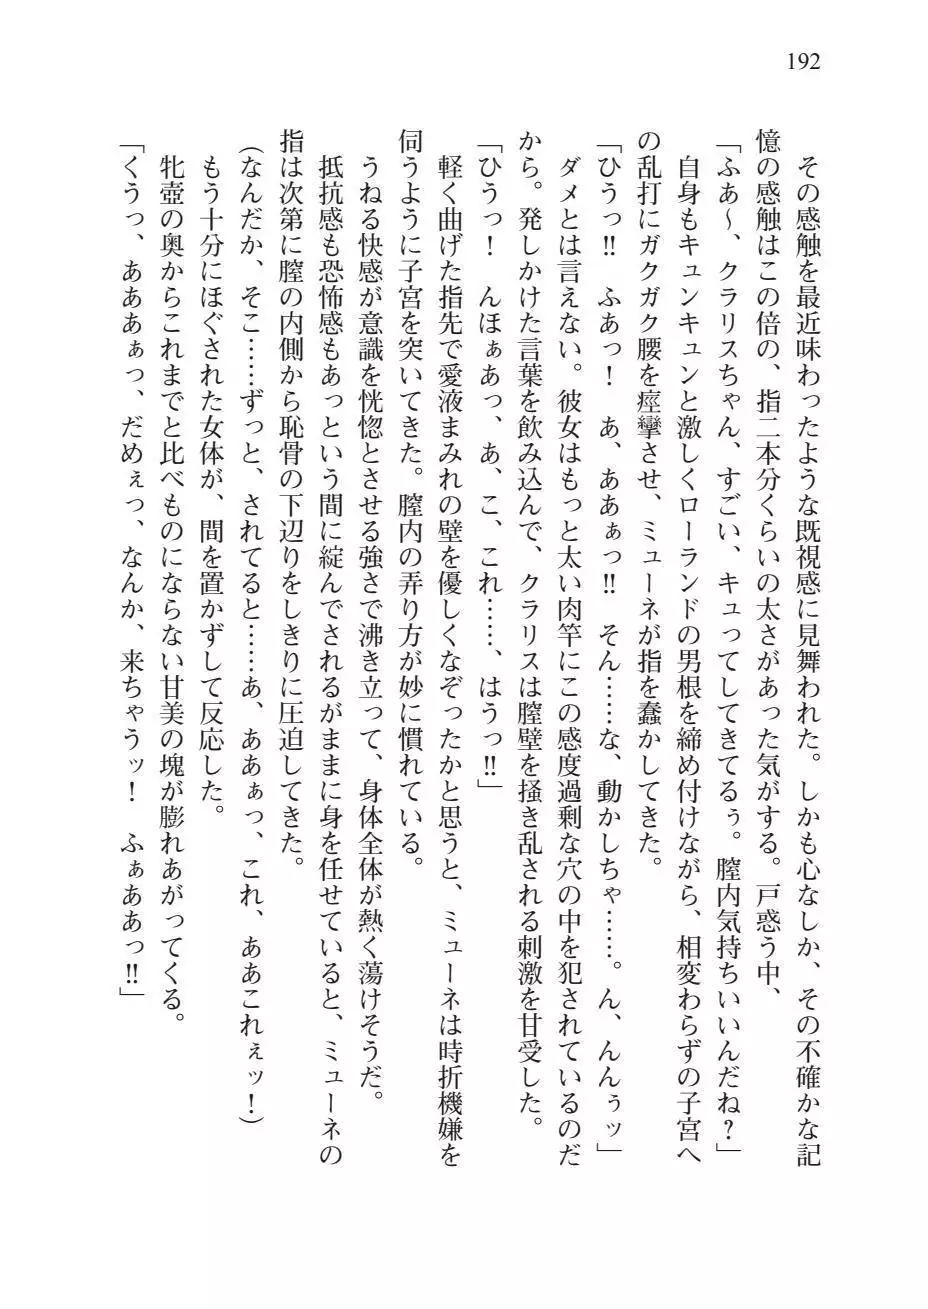 192
その感触を最近味わったような既視感に見舞われた。しかも心なしか、その不確かな記
憶の感触はこの倍の、指二本分くらいの太さがあった気がする。戸惑う中、
「ふあ～、クラリスちゃん、すごい、キュってしてきてるぅ。膣内気持ちいいんだね？」
自身もキュンキュンと激しくローランドの男根を締め付けながら、相変わらずの子宮へ
の乱打にガクガク腰を痙攣させ、ミューネが指を蠢かしてきた。
「ひうっ‼　ふあっ！　あ、ああぁっ‼　そん……な、動かしちゃ……。ん、んんぅッ」
ダメとは言えない。彼女はもっと太い肉竿にこの感度過剰な穴の中を犯されているのだ
から。発しかけた言葉を飲み込んで、クラリスは膣壁を掻き乱される刺激を甘受した。
「ひうっ！　んほぁあっ、あ、こ、これ……、はうっ‼」
軽く曲げた指先で愛液まみれの壁を優しくなぞったかと思うと、ミューネは時折機嫌を
伺うように子宮を突いてきた。膣内の弄り方が妙に慣れている。
うねる快感が意識を恍惚とさせる強さで沸き立って、身体全体が熱く蕩けそうだ。
抵抗感も恐怖感もあっという間に綻んでされるがままに身を任せていると、ミューネの
指は次第に膣の内側から恥骨の下辺りをしきりに圧迫してきた。
（なんだか、そこ……ずっと、されてると……あ、ああぁっ、これ、ああこれぇッ！）
もう十分にほぐされた女体が、間を置かずして反応した。
牝壺の奥からこれまでと比べものにならない甘美の塊が膨れあがってくる。
「くうっ、あああぁっ、だめぇっ、なんか、来ちゃうッ！　ふぁああっ‼」